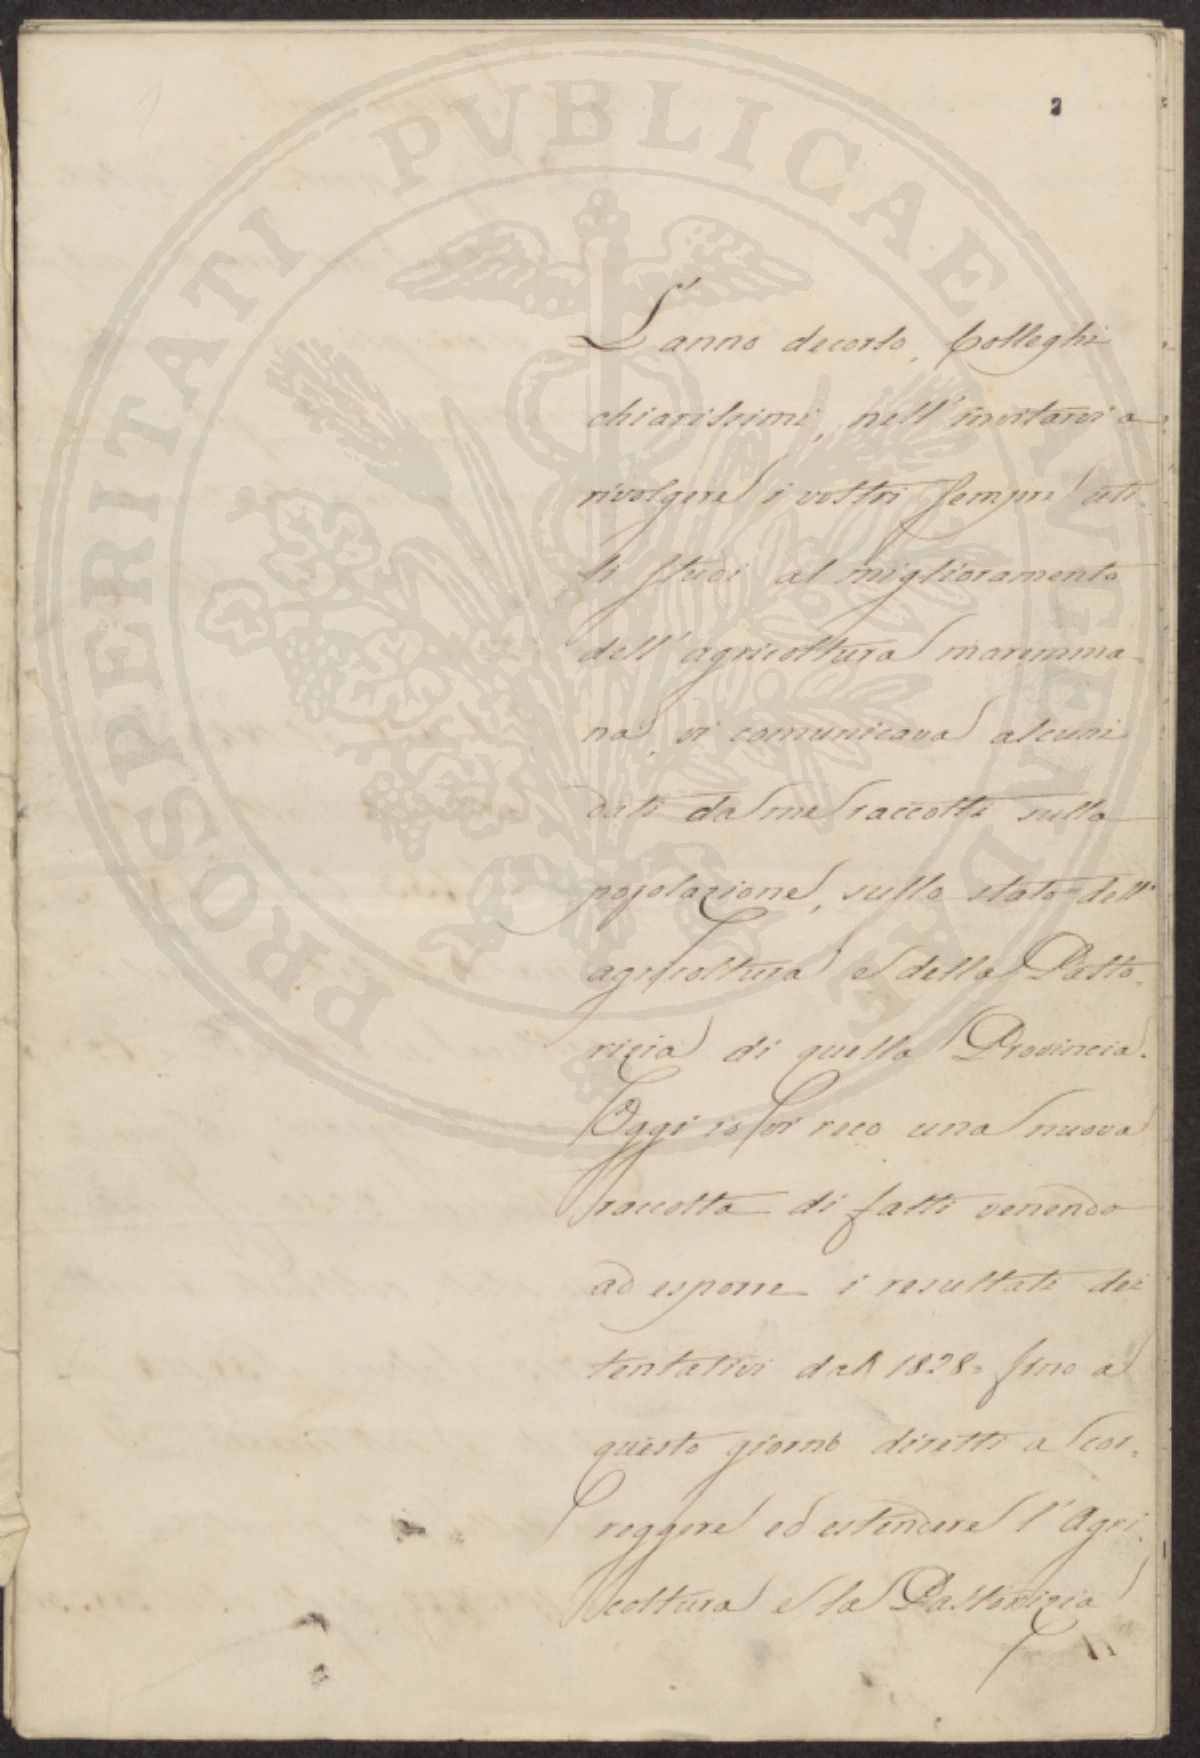 PROSPERITATI PVBLICAE AVGENDAE
2
L'anno decorso, Colleghi
chiarissimi, nell'invitarvi a
rivolgere i vostri sempre uti-
li studi al miglioramento
dell'agricoltura maremma-
na, vi comunicava alcuni
dati da me raccolti sulla
popolazione, sullo stato dell'
agricoltura e della Pasto-
rizia di quella Provincia.
Oggi io vi reco una nuova
raccolta di fatti venendo
ad esporre i resultati dei
tentativi dal 1828. fino a
questo giorno diretti a cor-
reggere ed estendere l'Agri-
coltura e la Pastorizia